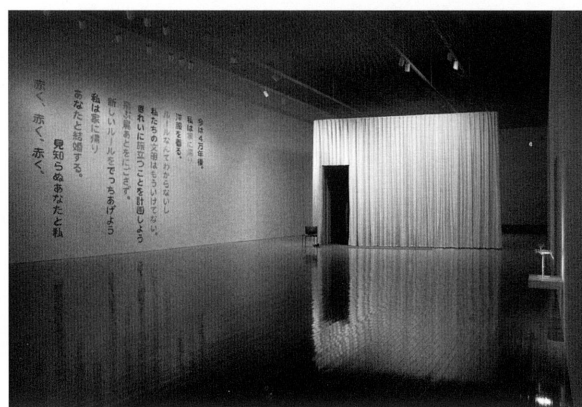 今は4万年後、
私は家に帰り
洋服を着る。
ルールなんてわからないし
私たちの文明はもういけてない。
きれいに旅立つことを計画しよう
飛ぶ鳥あとをにごさず。
新しいルールをでっちあげよう
私は家に帰り
あなたと結婚する。
見知らぬあなたと私
赤く、赤く、赤く、